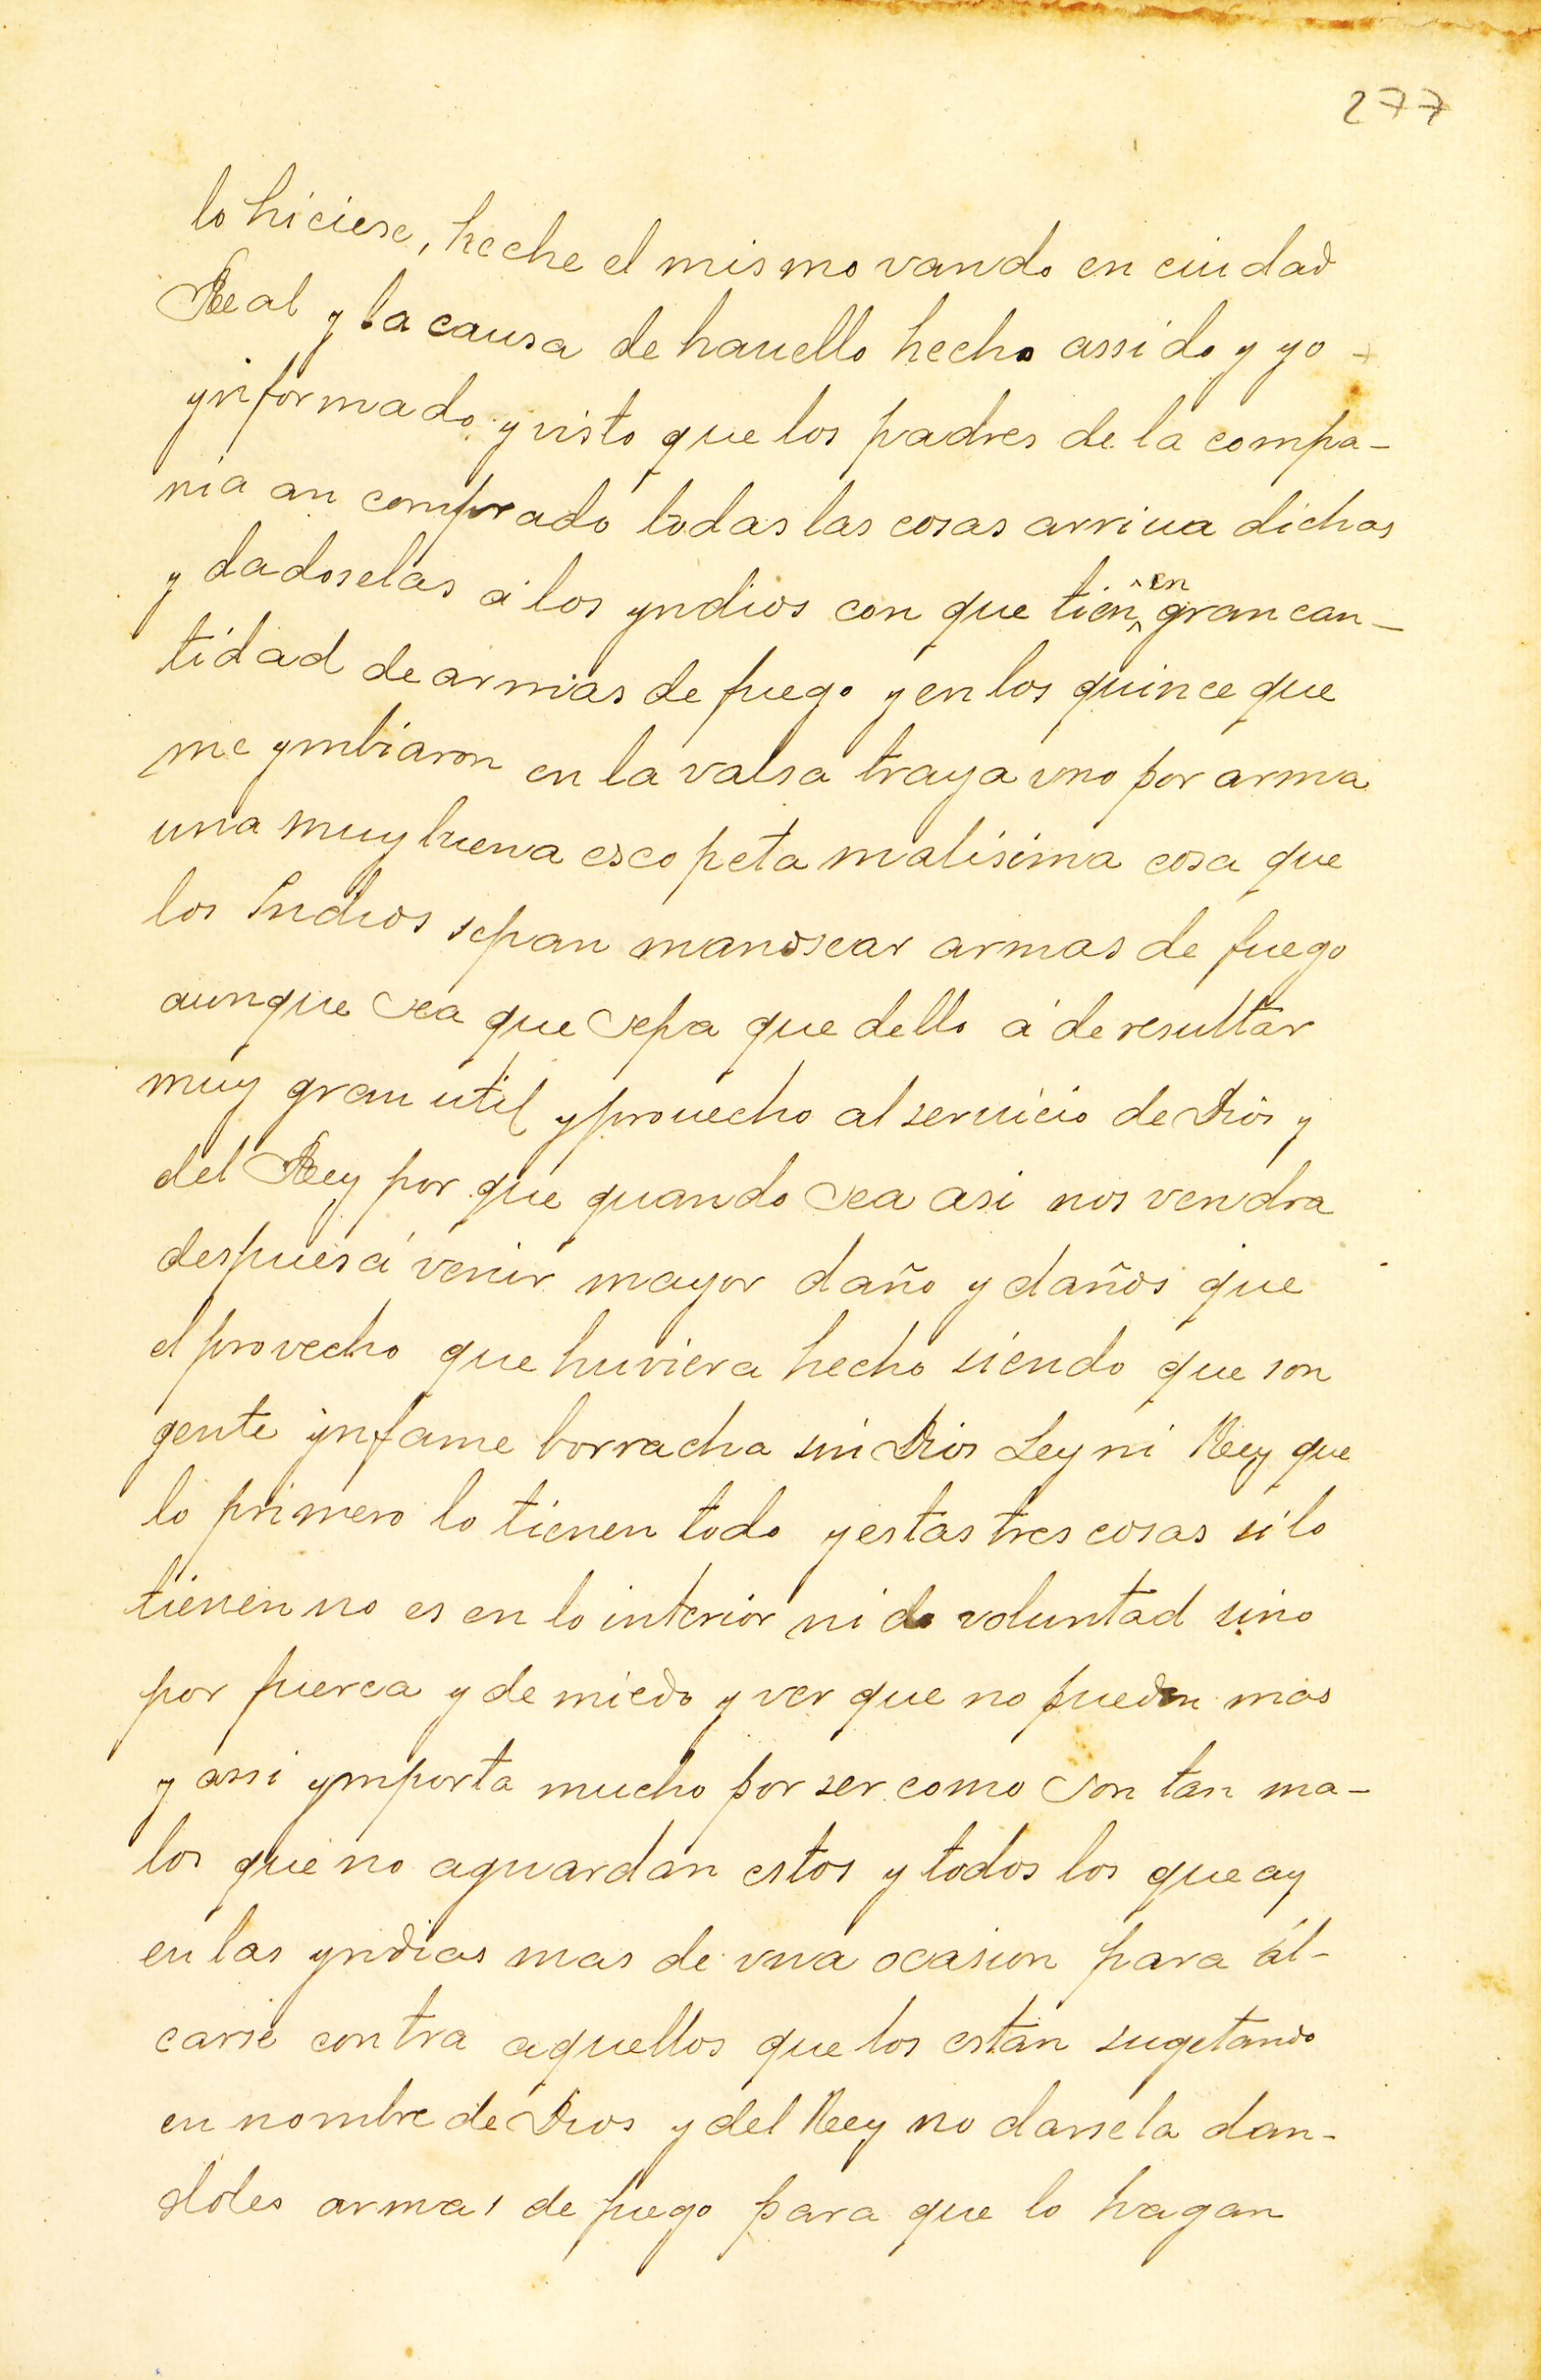 277
lo hiciese, heche el mismo vando en ciudad
Real y la causa de hauello hecho assido y yo
ynformado y visto que los padres de la compa-
nia an comprado todas las cosas arriua dichas
y dadoselas á los yndios con que tien en gran can-
tidad de armas de fuego y en los quince que
me ymbiaron en la valsa traya vno por arma
una muy buena escopeta malisima cosa que
los Indios sepan manosear armas de fuego
aunque sea que sepa que dello á de resultar
muy gran util y prouecho al seruicio de Dios y
del Rey por que quando sea asi nos vendra
despues á venir mayor daño y daños que
el provecho que huviera hecho siendo que son
gente ynfame borracha sin Dios Ley ni Rey que
lo primero lo tienen todo y estas tres cosas si lo
tienen no es en lo interior ni de voluntad sino
por fuerca y de miedo y ver que no pueden mas
y assi ymporta mucho por ser como son tan ma-
los que no aguardan estos y todos los que ay
en las yndias mas de vna ocasion para ál-
carse contra aquellos que los están sugetando
en nombre de Dios y del Rey no darsela dan-
doles armas de fuego para que lo hagan